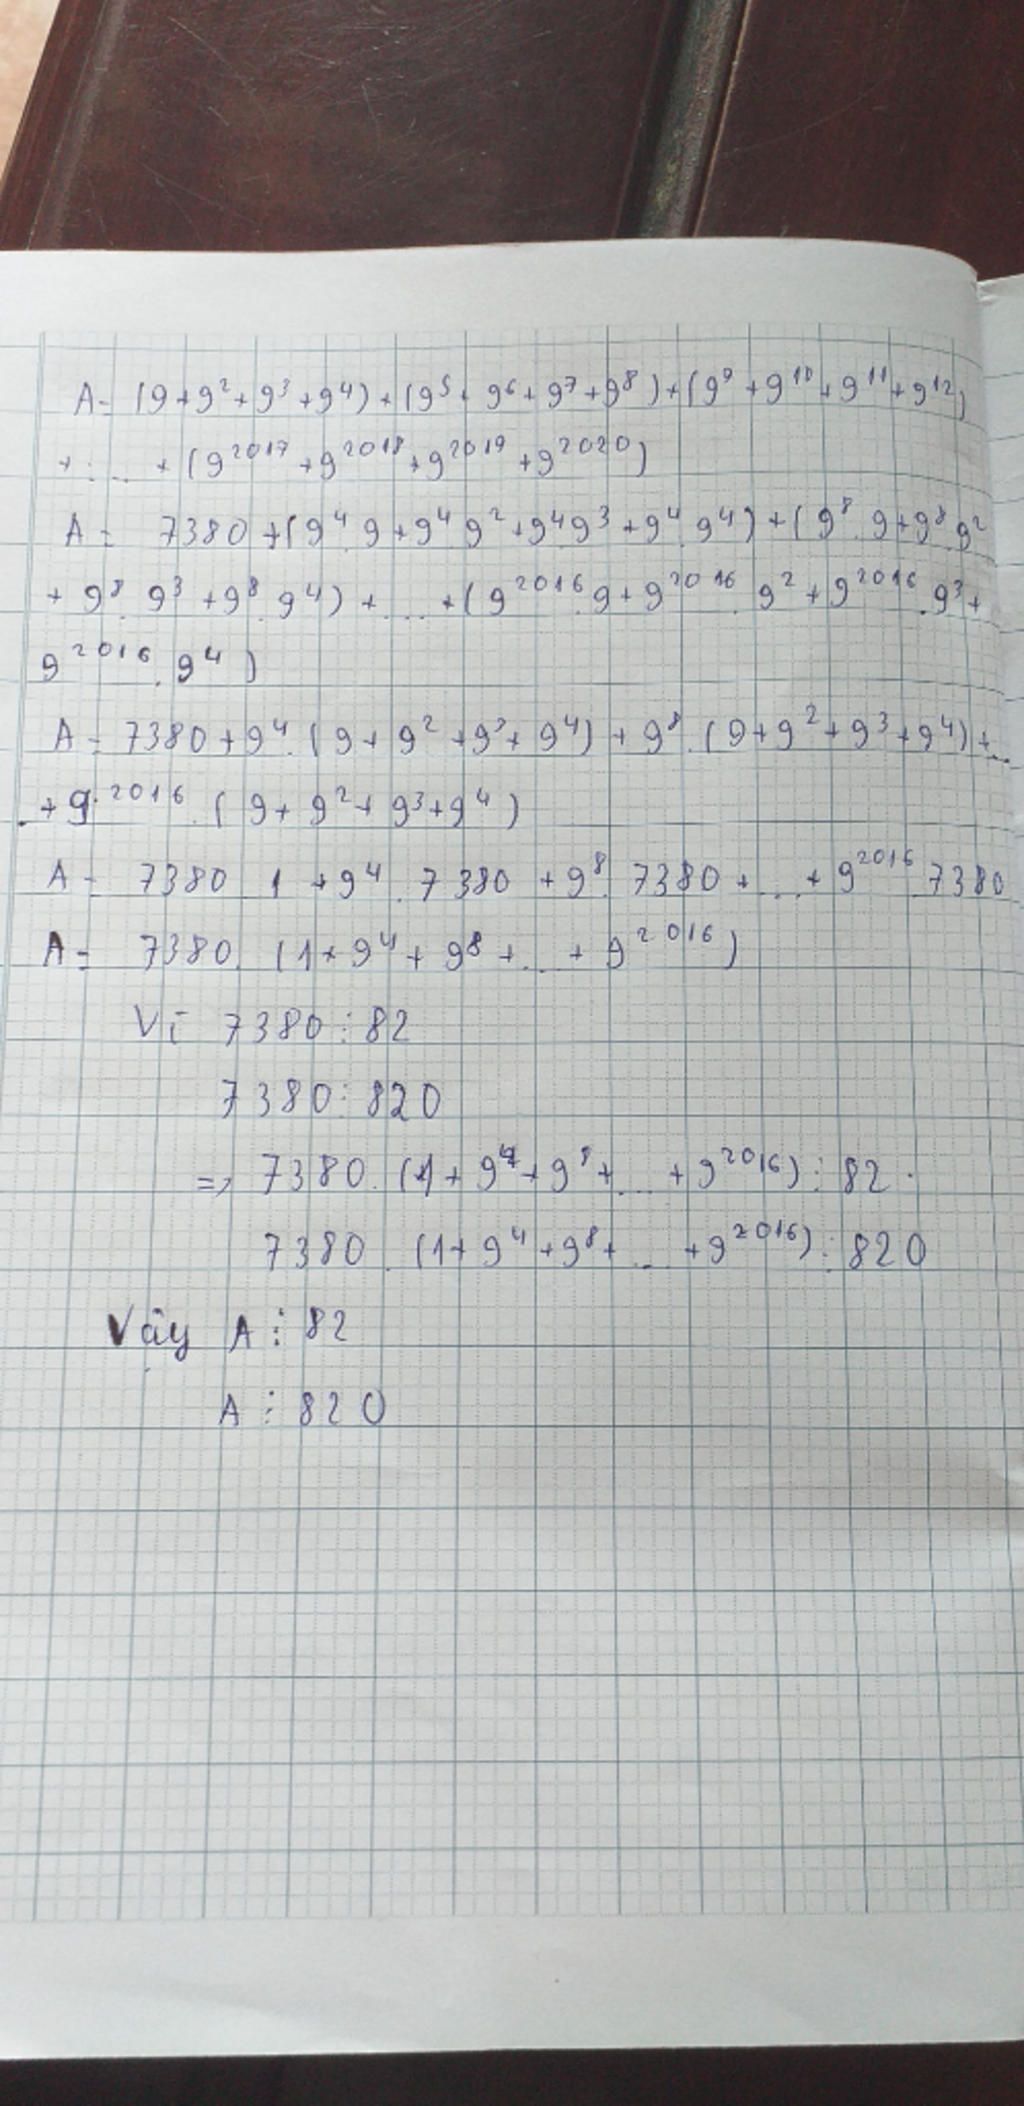 A = (9 + 9² + 9³ + 9⁴) + (9⁵ + 9⁶ + 9⁷ + 9⁸) + (9⁹ + 9¹⁰ + 9¹¹ + 9¹²)
+ ... + (9²⁰¹⁷ + 9²⁰¹⁸ + 9²⁰¹⁹ + 9²⁰²⁰)
A = 7380 + (9⁴.9 + 9⁴.9² + 9⁴.9³ + 9⁴.9⁴) + (9⁸.9 + 9⁸.9²
+ 9⁸.9³ + 9⁸.9⁴) + ... + (9²⁰¹⁶.9 + 9²⁰¹⁶.9² + 9²⁰¹⁶.9³ +
9²⁰¹⁶.9⁴)
A = 7380 + 9⁴.(9 + 9² + 9³ + 9⁴) + 9⁸.(9 + 9² + 9³ + 9⁴) + ...
+ 9²⁰¹⁶.(9 + 9² + 9³ + 9⁴)
A = 7380.1 + 9⁴.7380 + 9⁸.7380 + ... + 9²⁰¹⁶.7380
A = 7380.(1 + 9⁴ + 9⁸ + ... + 9²⁰¹⁶)
Vì 7380 ⋮ 82
7380 ⋮ 820
=> 7380.(1 + 9⁴ + 9⁸ + ... + 9²⁰¹⁶) ⋮ 82.
7380.(1 + 9⁴ + 9⁸ + ... + 9²⁰¹⁶) ⋮ 820
Vậy A ⋮ 82
A ⋮ 820